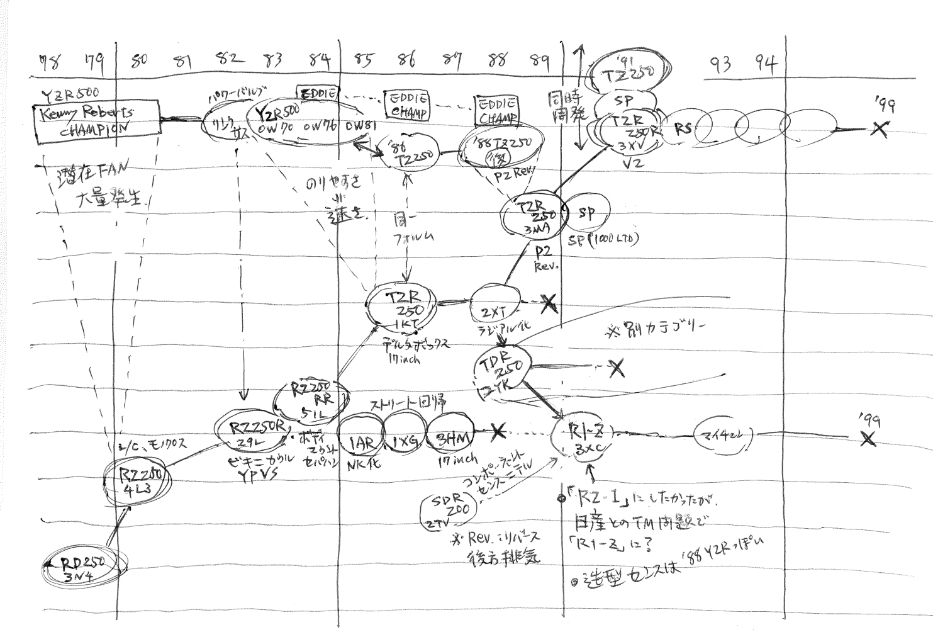 78 79 80 81 82 83 84 85 86 87 88 89 93 94
YZR500
Kenny Roberts
CHAMPION
潜在FAN
大量発生
パワーバルブ
リンク
サス
YZR500
OW70 OW76 OW81
EDDIE
EDDIE
CHAMP
EDDIE
CHAMP
'86
TZ250
'88 TZ250
P2 Rev.
同時
開発
'91
TZ250
SP
TZR
250R
3XV
V2
RS
'99
のりやすさ
=
速さ
同一
フォルム
TZR
250
3MA
SP
SP(1000LTD)
P2
Rev.
TZR
250
1KT
デルタボックス
17inch
2XT
ラジアル化
※別カテゴリー
TDR
250
2YK
RZ250
RR
51L
RZ250R
29L
ビキニカウル
YPVS
・ボディ
マウント
セパハン
ストリート回帰
1AR
NK化
1XG
3HM
17inch
R1-Z
3XC
マイチェン
'99
L/C、モノクロス
RZ250
4L3
RD250
3N4
コンポーネント
センス=デル
SDR
200
2TV
※Rev.:リバース
後方排気
●「RZ-1」にしたかったが、
日産とのTM問題で
「R1-Z」に?
●造型センスは'88YZRっぽい